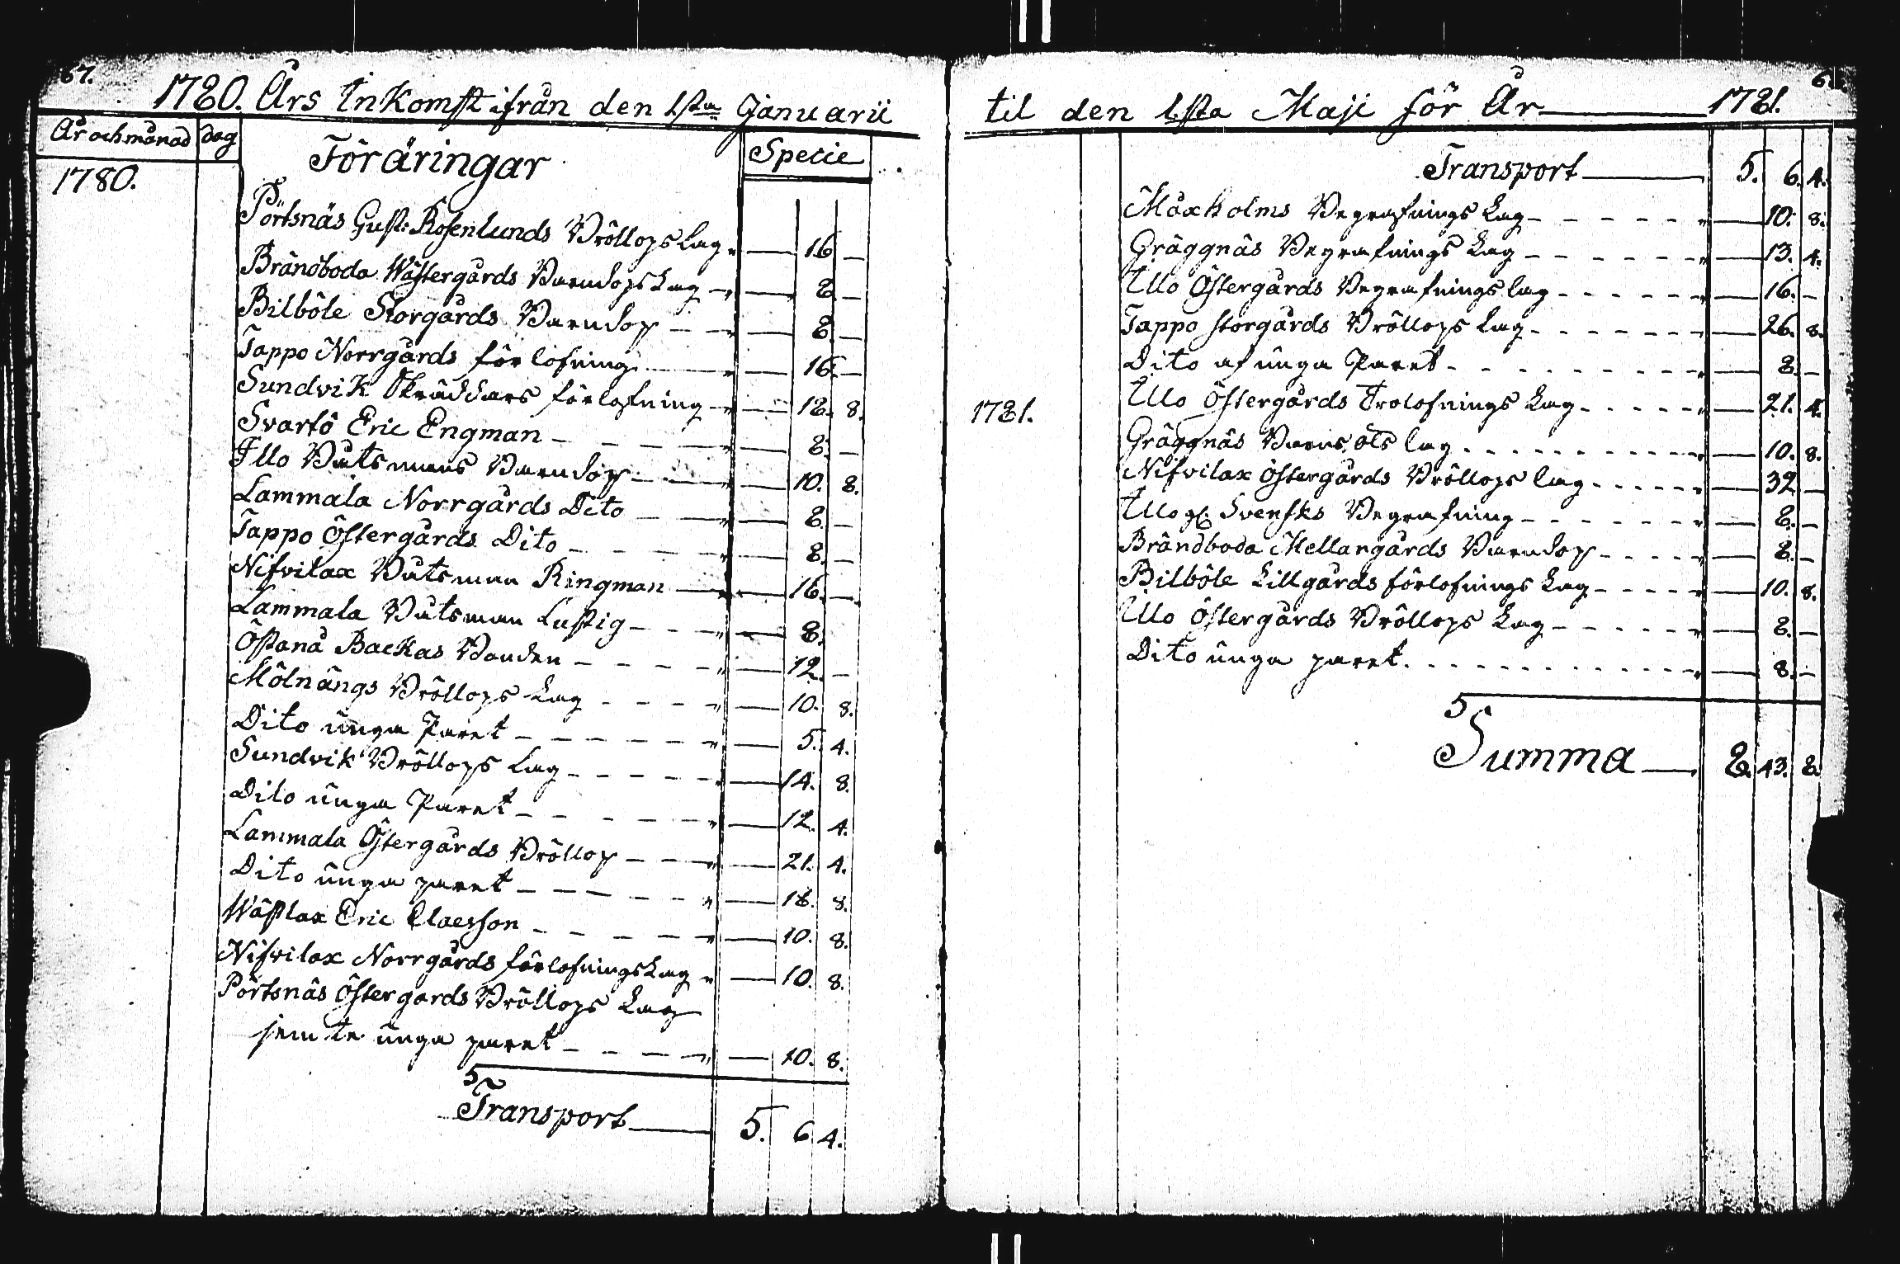 67.
1780. Års Inkomst ifrån den 1sta Januarii
År och månad dag
Föräringar
Specie
1780.
Pörtsnäs Gust: Rosenlunds Bröllops Lag 16 —
Brändboda Wästergårds Barndops Lag 8 —
Bilböle Storgårds Barndop 8 —
Tappo Norrgårds förlofning 16 —
Sundvik Skräddars förlofning 18. 8.
Svartö Eric Engman 8 —
Illo Båtsmans Barndop 10. 8.
Lammala Norrgårds Dito 8 —
Tappo Östergårds Dito 8 —
Nifvilax Båtsman Ringman 16 —
Lammala Båtsman Lustig 8.
Östanå Backas Bonden 12 —
Mölnängs Bröllops Lag 10. 8.
Dito unga Paret 5. 4.
Sundvik Bröllops Lag 14. 8.
Dito unga Paret 12. 4.
Lammala Östergårds Bröllop 21. 4.
Dito unga paret 18. 8.
Wästlax Eric Claesson 10. 8.
Nifvilax Norrgårds förlofnings Lag 10. 8.
Pörtsnäs Östergards Bröllops Lag
jemte unga paret 10. 8.
Transport 5. 6. 4.
til den 1sta Maji för År 1781.
Transport 5. 6. 4.
Måxholms Begrafnings Lag 10. 8.
Gräggnäs Begrafnings Lag 13. 4.
Illo Östergårds Begrafnings lag 16. —
Tappo storgårds Bröllops Lag 26. 8.
Dito af unga Paret 8. —
1781.
Illo Östergårds Trolofnings Lag 21. 4.
Gräggnäs Barns öls lag 10. 8.
Nifvilax Östergårds Bröllops lag 32 —
Illo gl: Svensks Begrafning 8. —
Brändboda Mellangårds Barndop 8. —
Bilböle Lillgårds förlofnings Lag 10. 8.
Illo Östergårds Bröllops Lag 8. —
Dito unga paret 8. —
Summa 8. 43. 8.